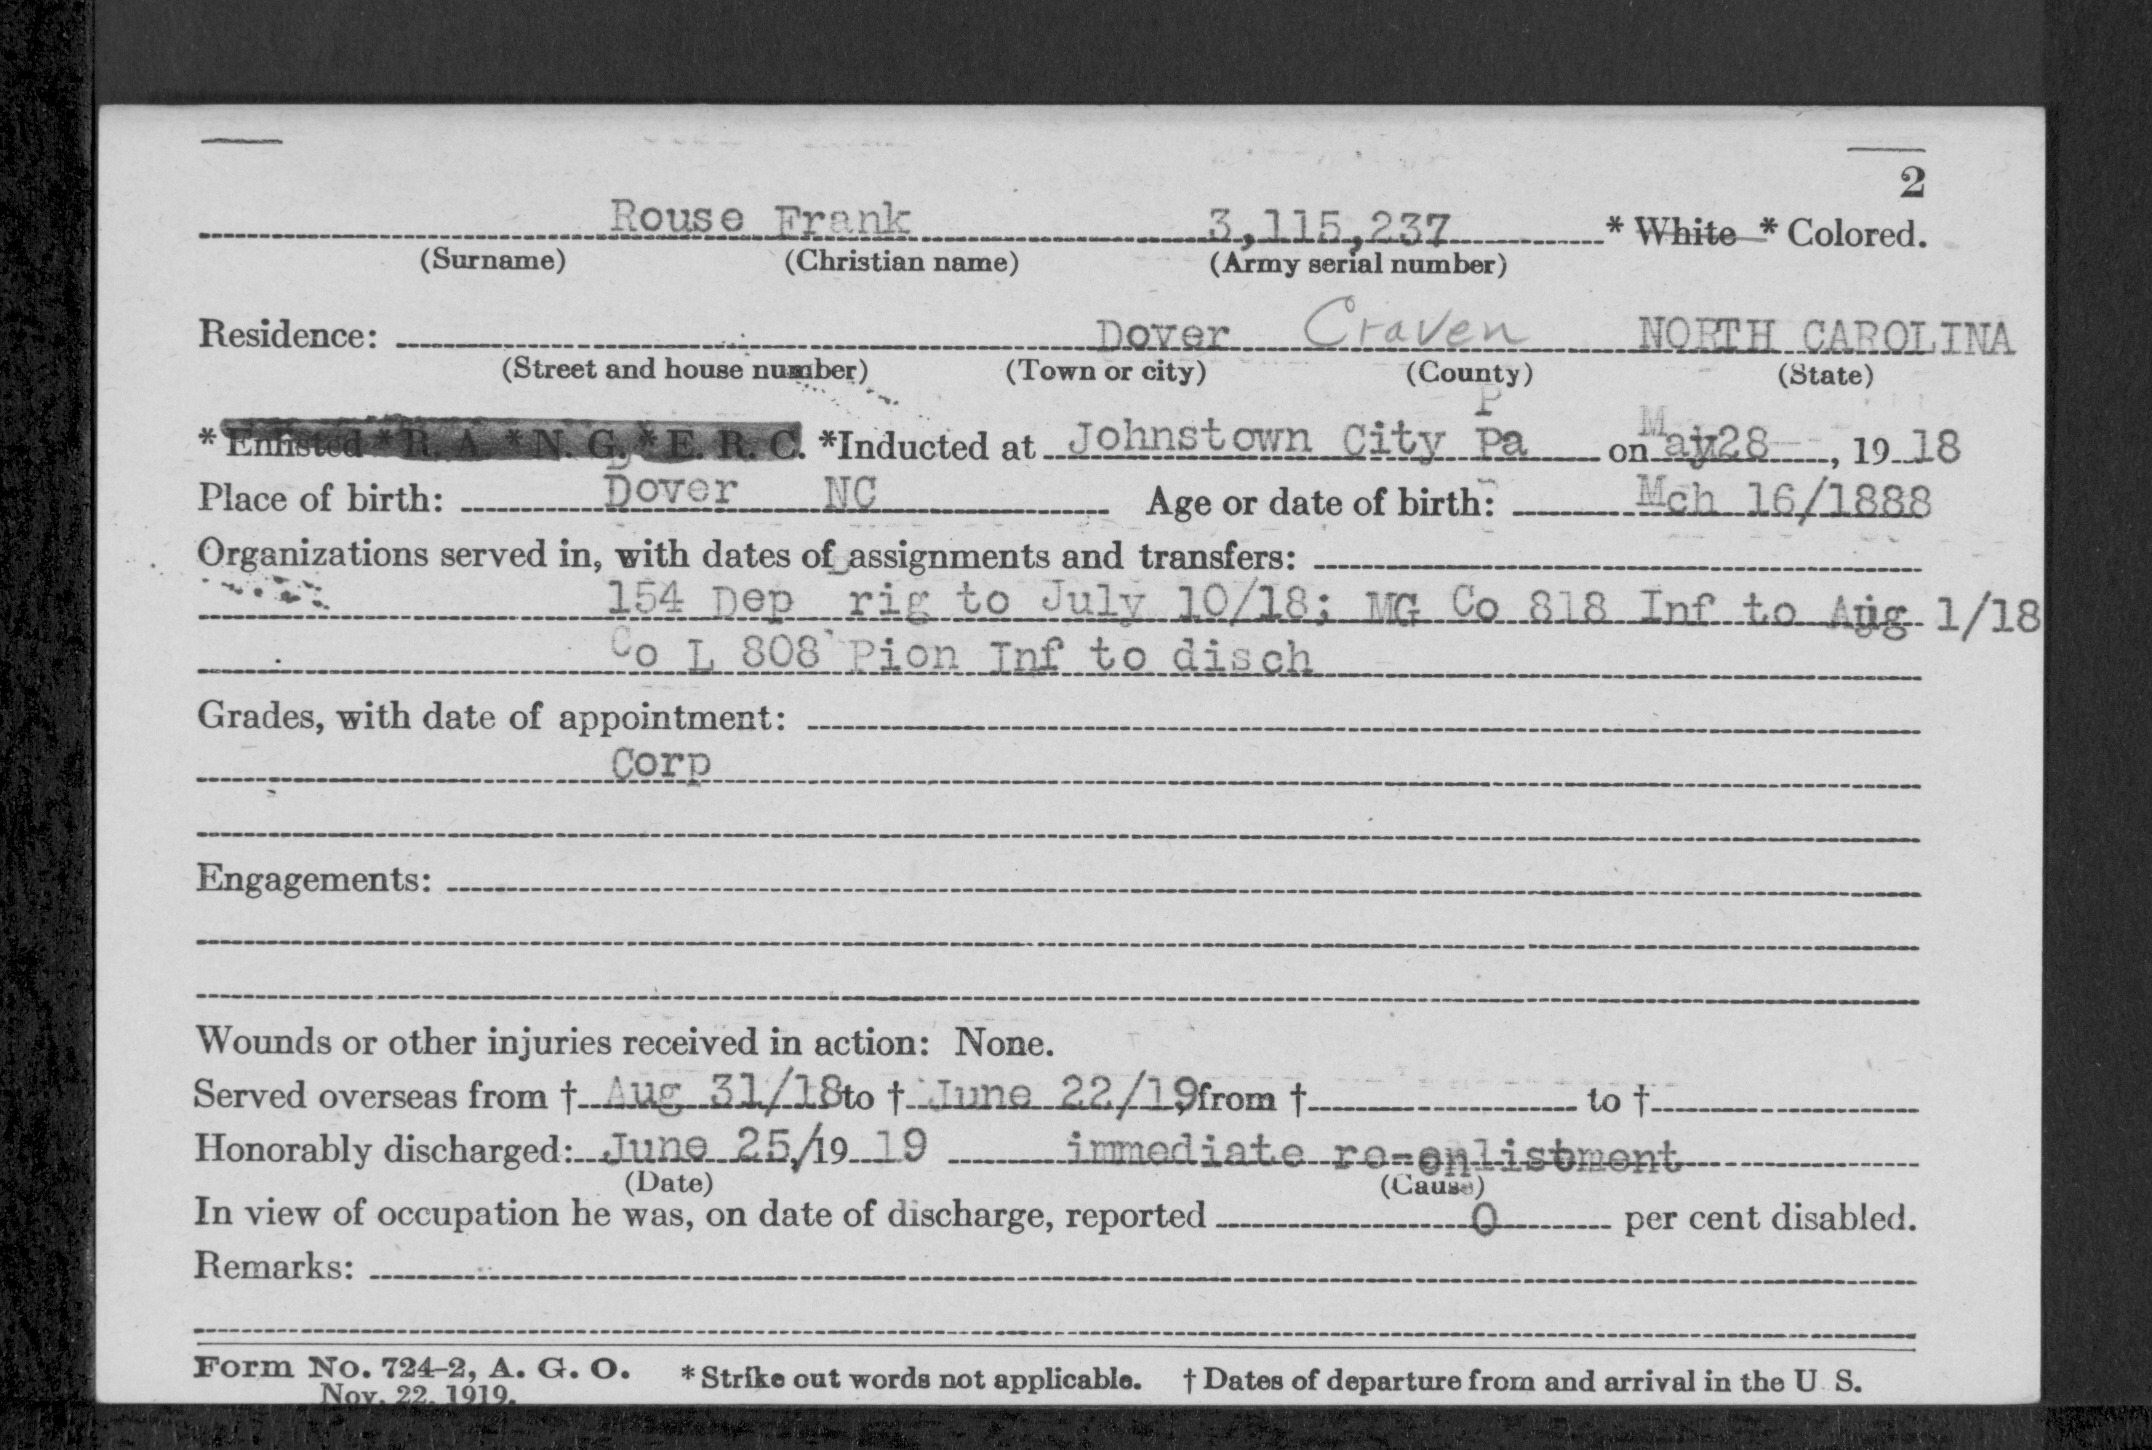 2
Rouse Frank 3,115,237 * White * Colored.
(Surname) (Christian name) (Army serial number)
Residence: Dover Craven NORTH CAROLINA
(Street and house number) (Town or city) (County) (State)
* Enlisted * R. A. * N. G. * E. R. C. *Inducted at Johnstown City Pa on May 28, 19 18
Place of birth: Dover NC Age or date of birth: Mch 16/1888
Organizations served in, with dates of assignments and transfers:
154 Dep rig to July 10/18; MG Co 818 Inf to Aug 1/18
Co L 808 Pion Inf to disch
Grades, with date of appointment:
Corp
Engagements:
Wounds or other injuries received in action: None.
Served overseas from † Aug 31/18 to † June 22/19, from † to †
Honorably discharged: June 25,/19 19 immediate re-enlistment
(Date) (Cause)
In view of occupation he was, on date of discharge, reported 0 per cent disabled.
Remarks:
Form No. 724-2, A. G. O. * Strike out words not applicable. † Dates of departure from and arrival in the U. S.
Nov. 22, 1919.